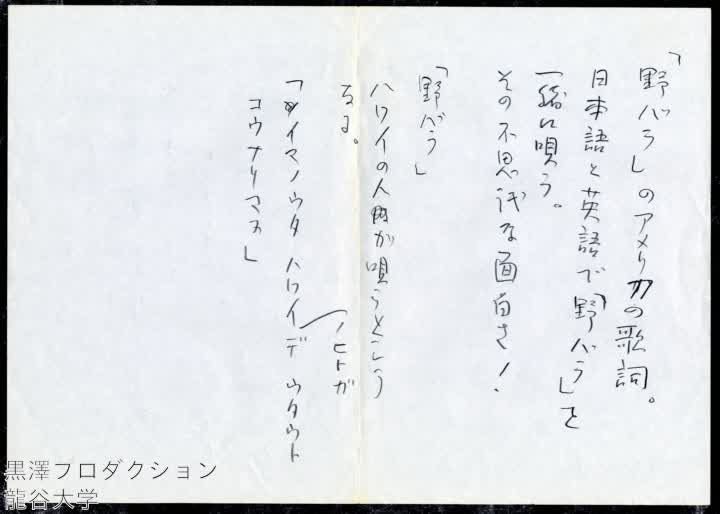 「野バラ」のアメリカの歌詞。
日本語と英語で「野バラ」を
一緒に唄う。
その不思議な面白さ!
「野バラ」
ハワイの人間が唄うとこう
なる。
「イマノウタ ハワイデ ウタウト
ノヒトガ
コウナリマス」
黒澤プロダクション
龍谷大学